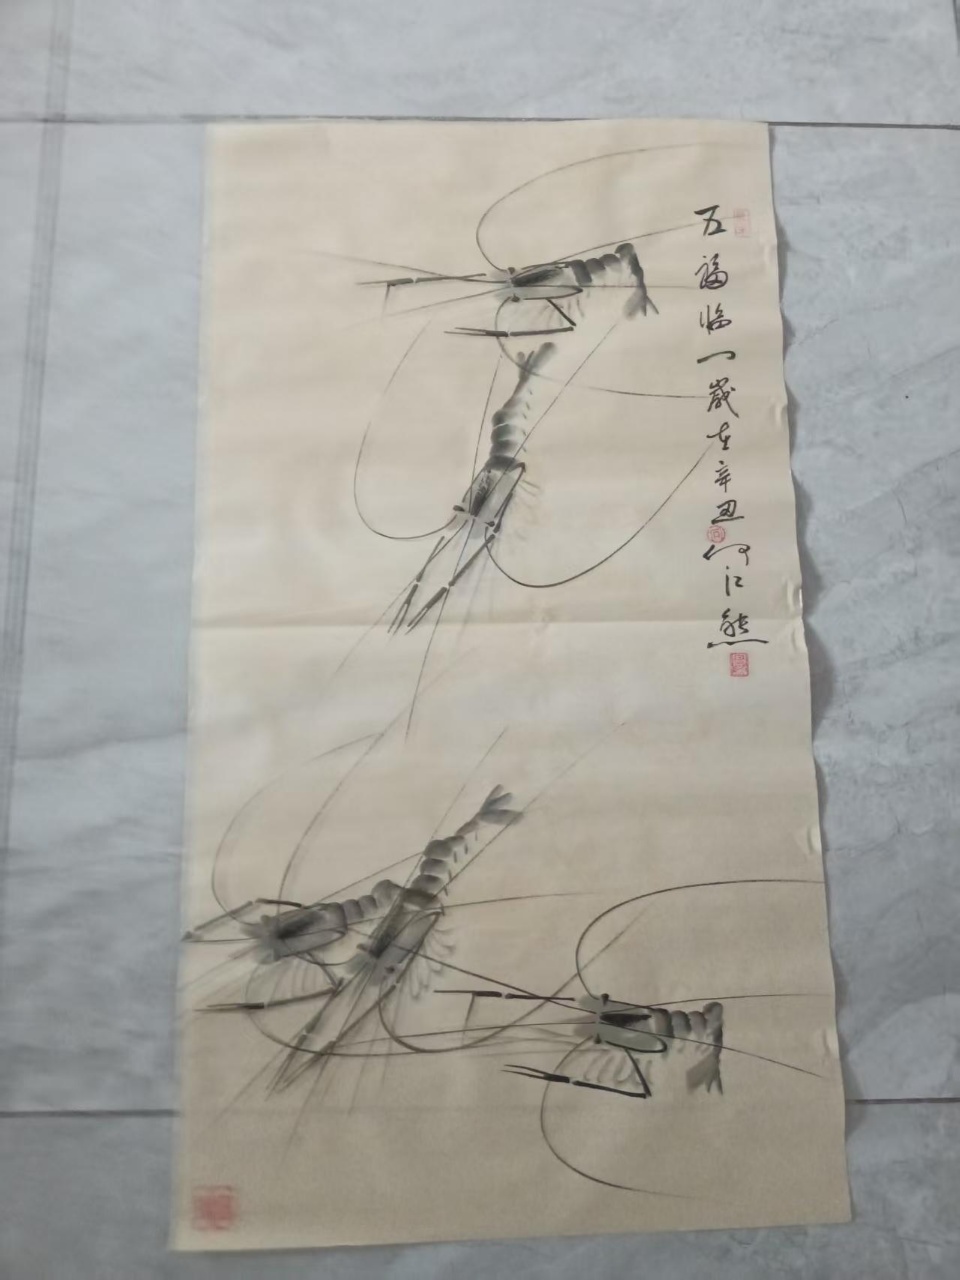 五福临门岁在辛丑何江熊